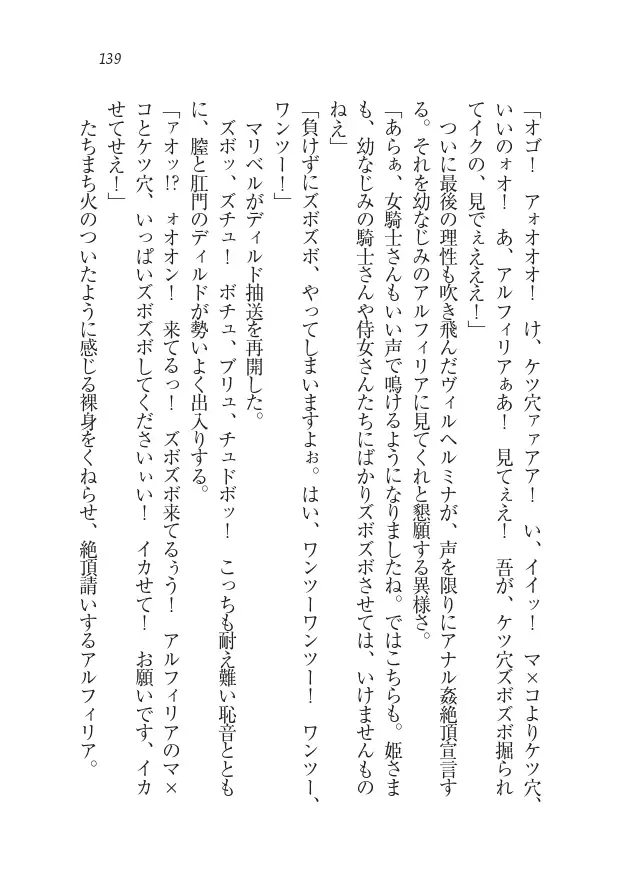 139
「オゴ！　アォオオオ！　け、ケツ穴ァァアア！　い、イイッ！　マ×コよりケツ穴、
いいのォオ！　あ、アルフィリアぁあ！　見てぇえ！　吾が、ケツ穴ズボズボ掘られ
てイクの、見でぇえええ！」
　ついに最後の理性も吹き飛んだヴィルヘルミナが、声を限りにアナル姦絶頂宣言す
る。それを幼なじみのアルフィリアに見てくれと懇願する異様さ。
「あらぁ、女騎士さんもいい声で鳴けるようになりましたね。ではこちらも。姫さま
も、幼なじみの騎士さんや侍女さんたちにばかりズボズボさせては、いけませんもの
ねえ」
「負けずにズボズボ、やってしまいますよぉ。はい、ワンツーワンツー！　ワンツー、
ワンツー！」
　マリベルがディルド抽送を再開した。
　ズボッ、ズチュ！　ボチュ、ブリュ、チュドボッ！　こっちも耐え難い恥音ととも
に、膣と肛門のディルドが勢いよく出入りする。
「ァオッ!?　ォオオン！　来てるっ！　ズボズボ来てるぅう！　アルフィリアのマ×
コとケツ穴、いっぱいズボズボしてくださいぃい！　イカせて！　お願いです、イカ
せてせえ！」
　たちまち火のついたように感じる裸身をくねらせ、絶頂請いするアルフィリア。